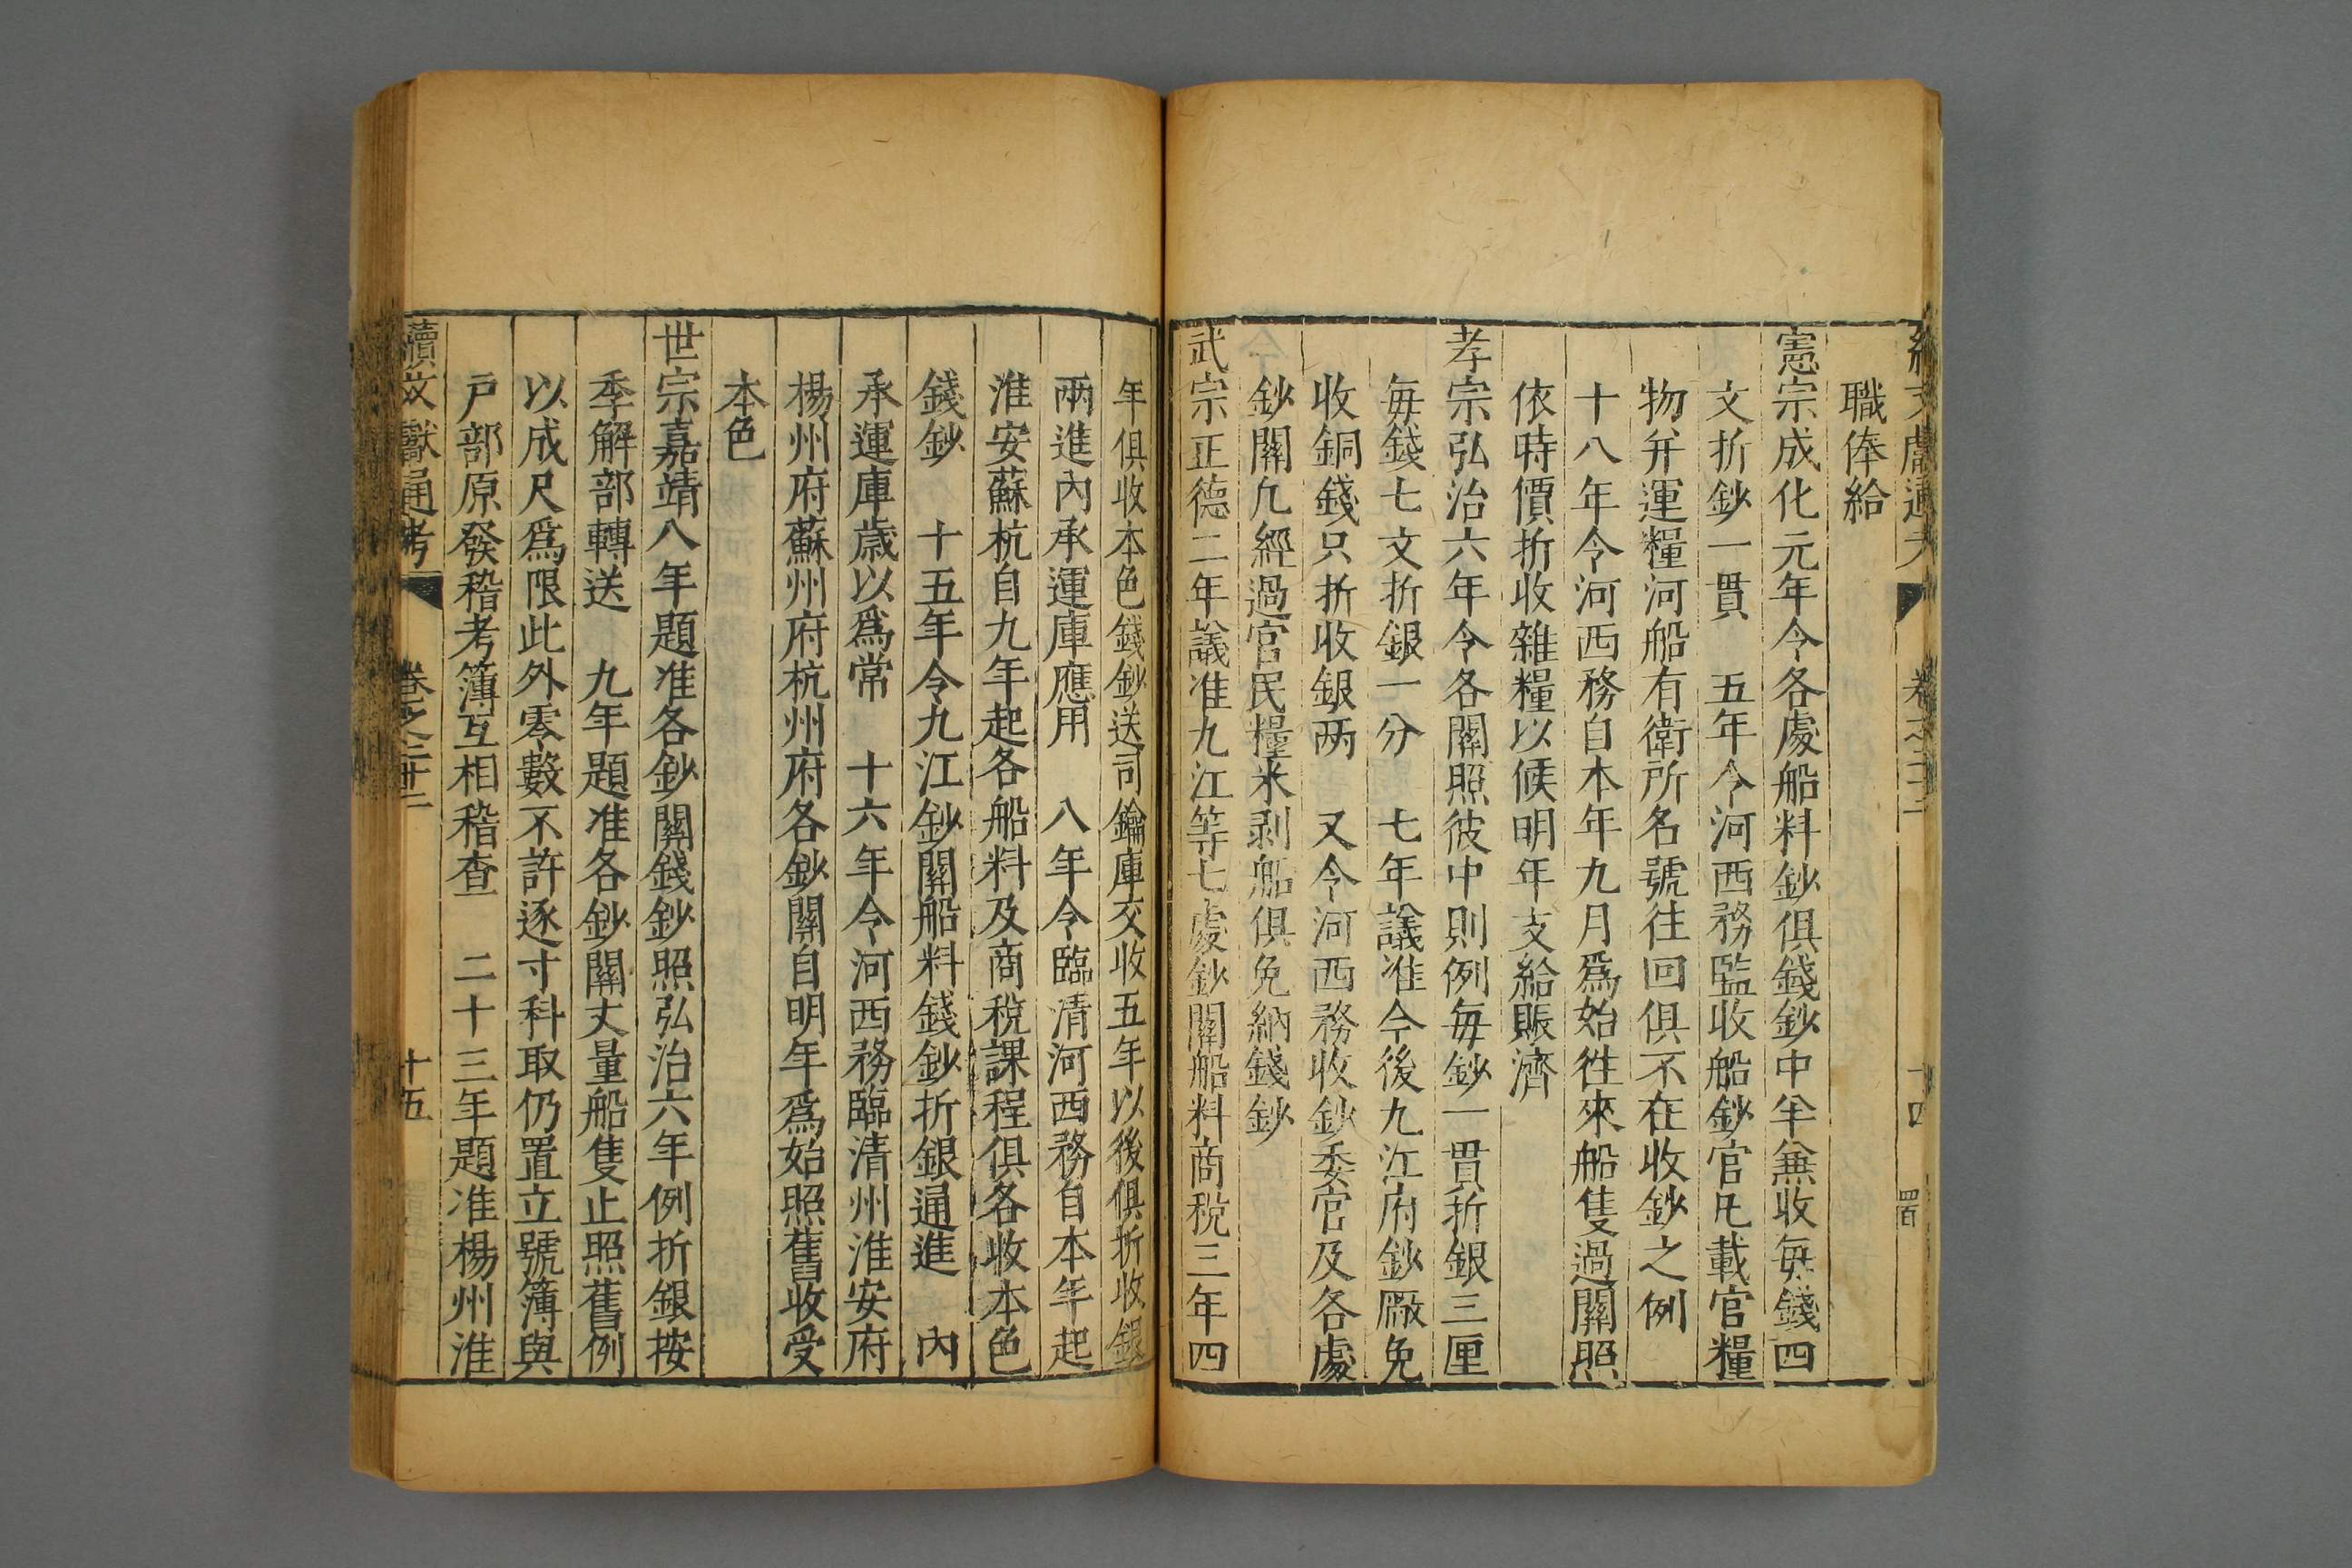 職俸給
憲宗成化元年令各處船料鈔俱錢鈔中半兼收每錢四
文折鈔一貫　五年令河西務監收船鈔官凡載官糧
物并運糧河船有衛所名號徃回俱不在收鈔之例
十八年令河西務自本年九月爲始徃來船隻過關照
依時價折收雜糧以候明年支給賑濟
孝宗弘治六年令各關照彼中則例每鈔一貫折銀三厘
每錢七文折銀一分　七年議准今後九江府鈔厰免
收銅錢只折收銀两　又令河西務收鈔委官及各處
鈔關凡經過官民糧米剥船俱免納錢鈔
武宗正德二年議准九江等七處鈔關船料商稅三年四
年俱收本色錢鈔送司鑰庫交收五年以後俱折收銀
兩進內承運庫應用　八年令臨清河西務自本年起
淮安蘇杭自九年起各船料及商稅課程俱各收本色
錢鈔　十五年令九江鈔關船料錢鈔折銀通進　內
承運庫歲以爲常　十六年令河西務臨清州淮安府
楊州府蘇州府杭州府各鈔關自明年爲始照舊收受
本色
世宗嘉靖八年題准各鈔關錢鈔照弘治六年例折銀按
季解部轉送　九年題准各鈔關丈量船隻止照舊例
以成尺爲限此外零數不許逐寸科取仍置立號簿與
戶部原發稽考簿互相稽查　二十三年題准楊州淮
續文獻通考　卷之三十二　十五